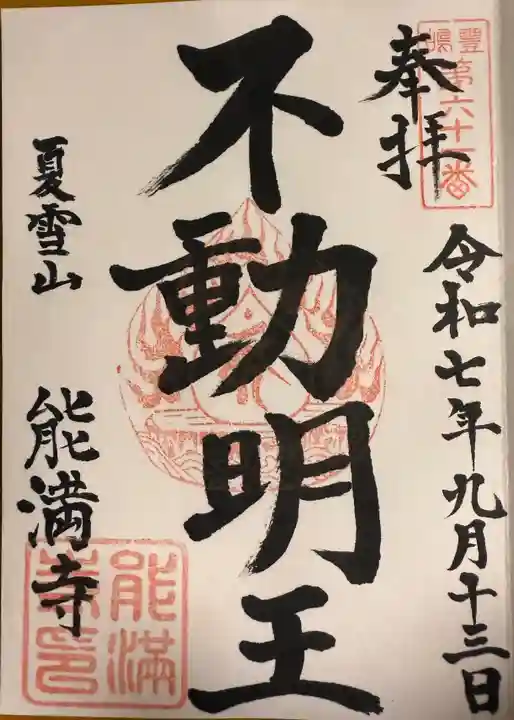 奉拝
豊嶋
第六十一番
令和七年九月十三日
不動明王
夏雪山
能満寺
能満
寺印